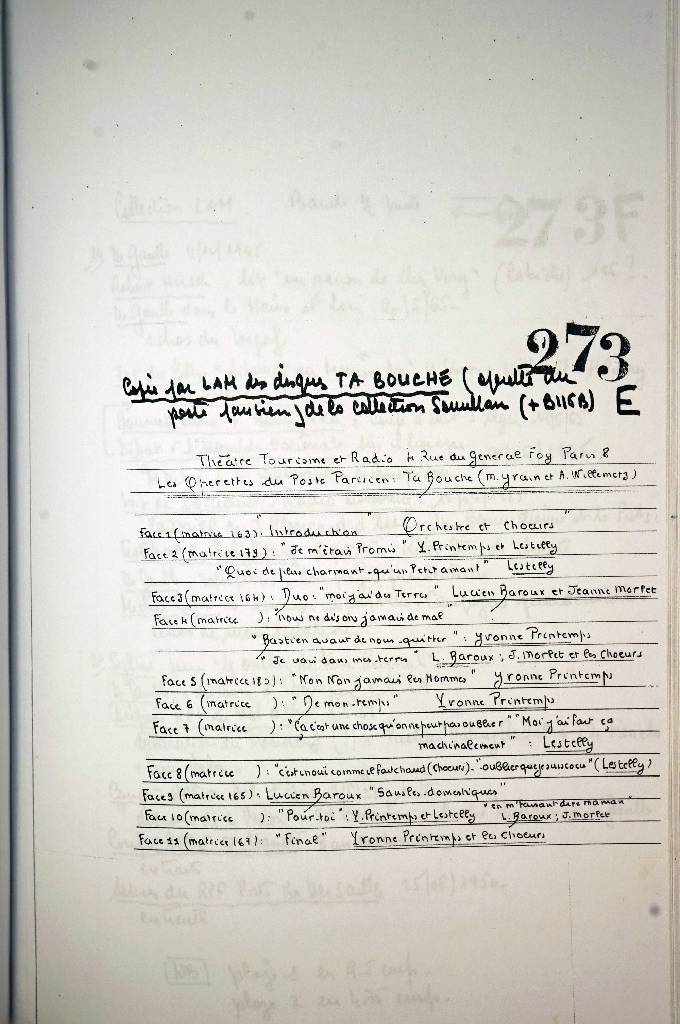 273
Copie par LAM des disques TA BOUCHE (operette du
poste parisien) de la collection (+B115B) E
Théâtre Tourisme et Radio 4 Rue du General Foy Paris 8
Les Operettes du Poste Parisien: Ta Bouche (M. Yvain et A. Willemetz)
Face 1 (matrice 163): "Introduction" Orchestre et Choeurs"
Face 2 (matrice 179): "Je m'étais Promis" Y. Printemps et Lestelly
"Quoi de plus charmant qu'un Petit amant" Lestelly
Face 3 (matrice 164): Duo: "moi j'ai des Terres" Lucien Baroux et Jeanne Morlet
Face 4 (matrice ): "nous ne disons jamais de mal"
"Bastien avant de nous quitter": Yvonne Printemps
"Je vais dans mes terres" L. Baroux; J. Morlet et les Choeurs
Face 5 (matrice 180): "Non Non jamais les Hommes" Yvonne Printemps
Face 6 (matrice ): "De mon temps" Yvonne Printemps
Face 7 (matrice ): "Ça c'est une chose qu'on ne peut pas oublier" "Moi j'ai fait ça
machinalement": Lestelly
Face 8 (matrice ): "c'est inoui comme il fait chaud (Choeurs)-"oublier que je suis cocu" (Lestelly)
Face 9 (matrice 165): Lucien Baroux "Sans les domestiques"
Face 10 (matrice ): "Pour toi": Y. Printemps et Lestelly "en m'faisant dire maman" L. Baroux; J. Morlet
Face 11 (matrice 167): "Final" Yvonne Printemps et les Choeurs